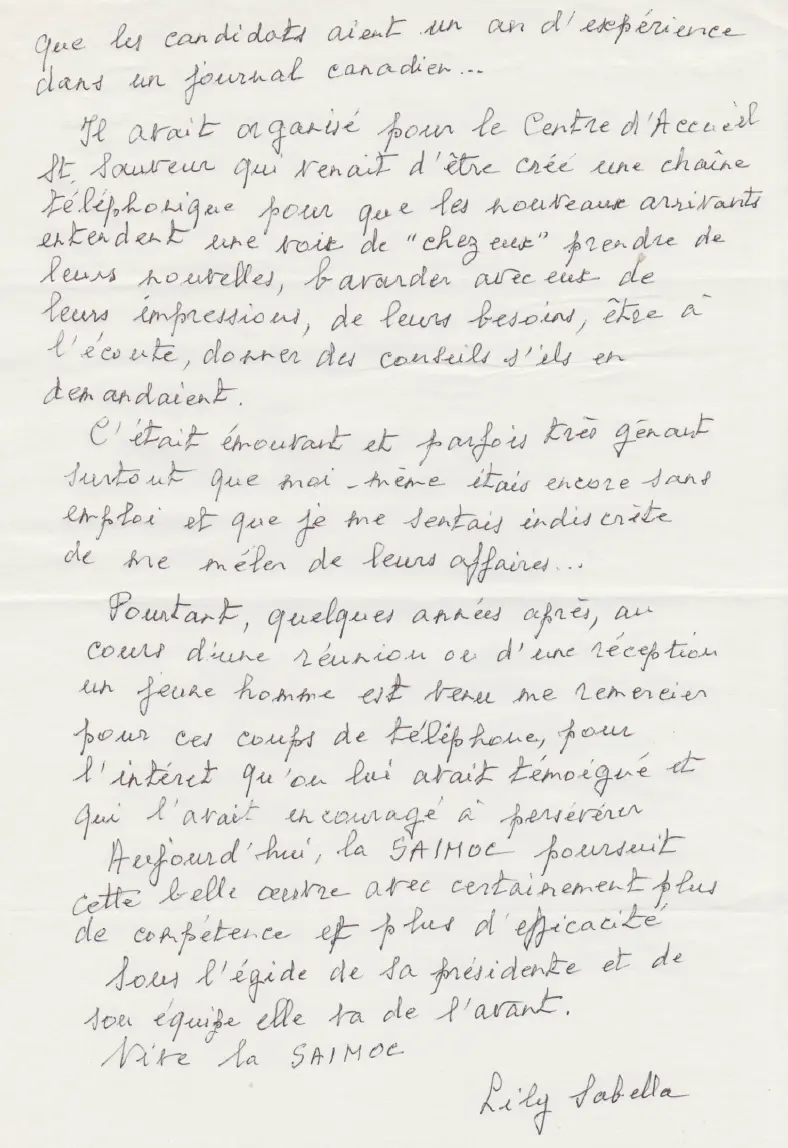 que les candidats aient un an d'expérience
dans un journal canadien...
Il avait organisé pour le Centre d'Accueil
St Sauveur qui venait d'être créé une chaîne
téléphonique pour que les nouveaux arrivants
entendent une voix de "chez eux" prendre de
leurs nouvelles, bavarder avec eux de
leurs impressions, de leurs besoins, être à
l'écoute, donner des conseils s'ils en
demandaient.
C'était émouvant et parfois très gênant
surtout que moi-même étais encore sans
emploi et que je me sentais indiscrète
de me mêler de leurs affaires...
Pourtant, quelques années après, au
cours d'une réunion ou d'une réception
un jeune homme est venu me remercier
pour ces coups de téléphone, pour
l'intéret qu'on lui avait témoigné et
qui l'avait encouragé à persévérer
Aujourd'hui, la SAIMOC poursuit
cette belle œuvre avec certainement plus
de compétence et plus d'efficacité
Sous l'égide de sa présidente et de
son équipe elle va de l'avant.
Vive la SAIMOC
Lily Sabella